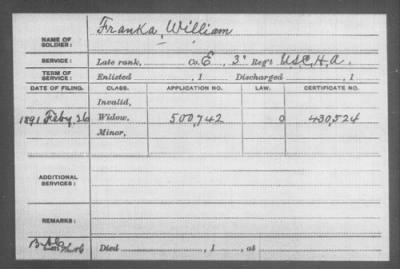 NAME OF SOLDIER: Franka, William
SERVICE: Late rank, Co. E, 3" Reg't U.S.C.H.A.
TERM OF SERVICE: Enlisted , 1 Discharged , 1
DATE OF FILING. CLASS. APPLICATION NO. LAW. CERTIFICATE NO.
Invalid,
1891 Feby. 26 Widow, 500,742 0 430,524
Minor,
ADDITIONAL SERVICES:
REMARKS:
Died , 1 , at